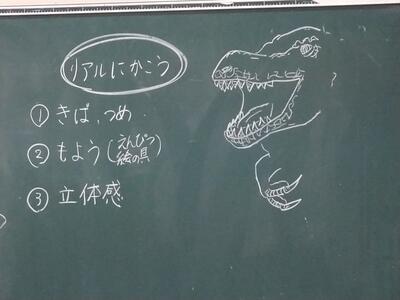 リアルにかこう
① きば、つめ
② もよう(えんぴつ 絵の具)
③ 立体感